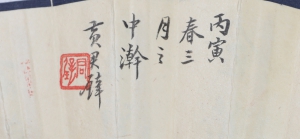 丙寅
春三
月之
中瀚
黃君璧